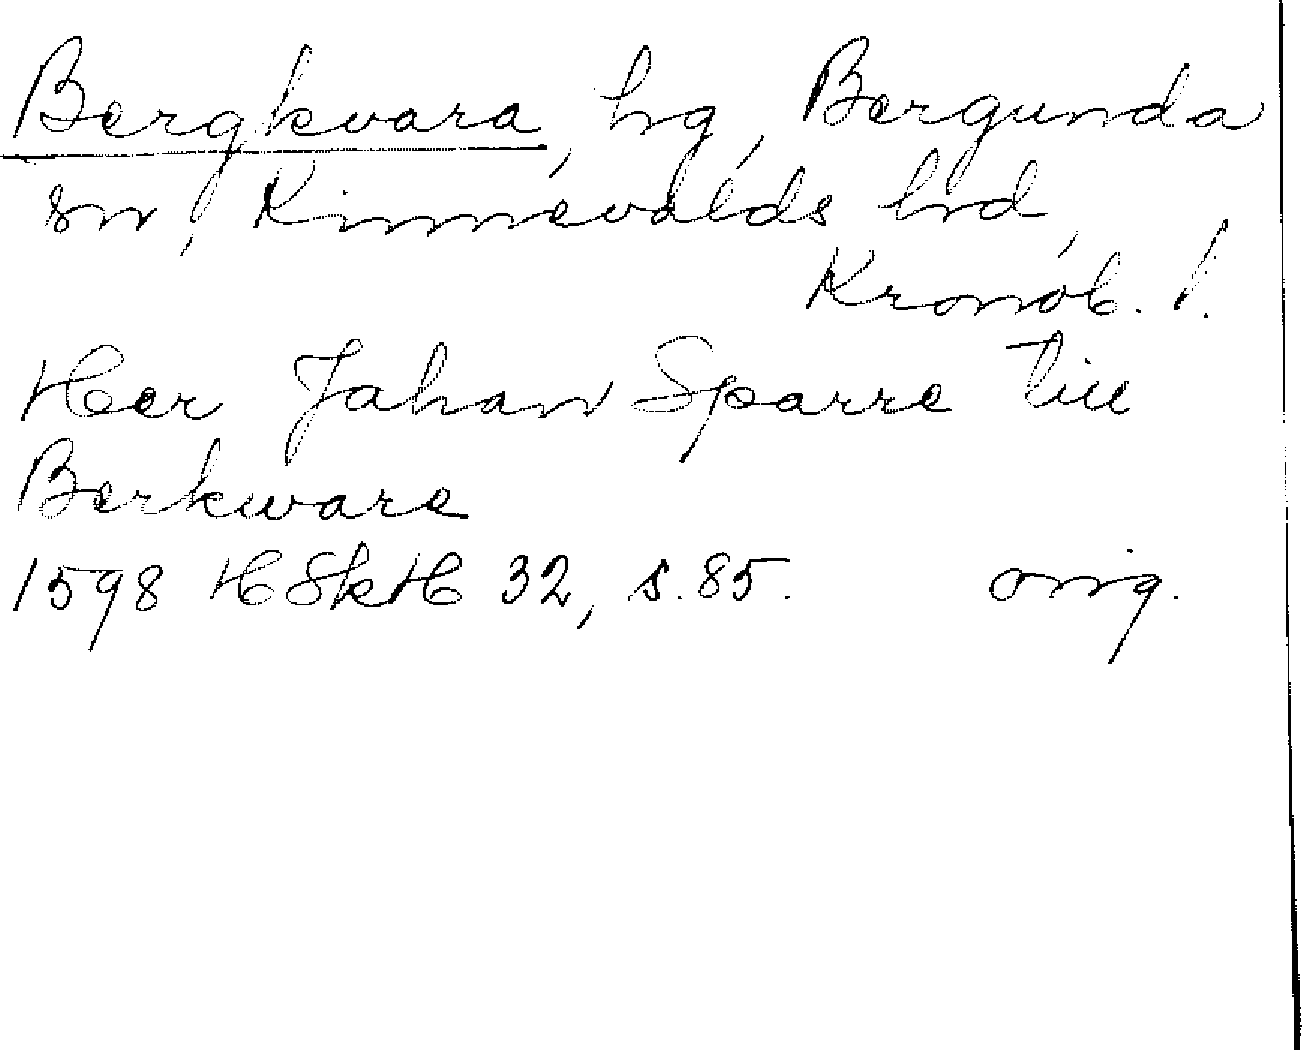 Bergkvara, hg, Bergunda
sn, Kinnevalds hd,
Kronob. l.
Her Jahan Sparre till
Berkware
1598 HSkH 32, s. 85. orig.